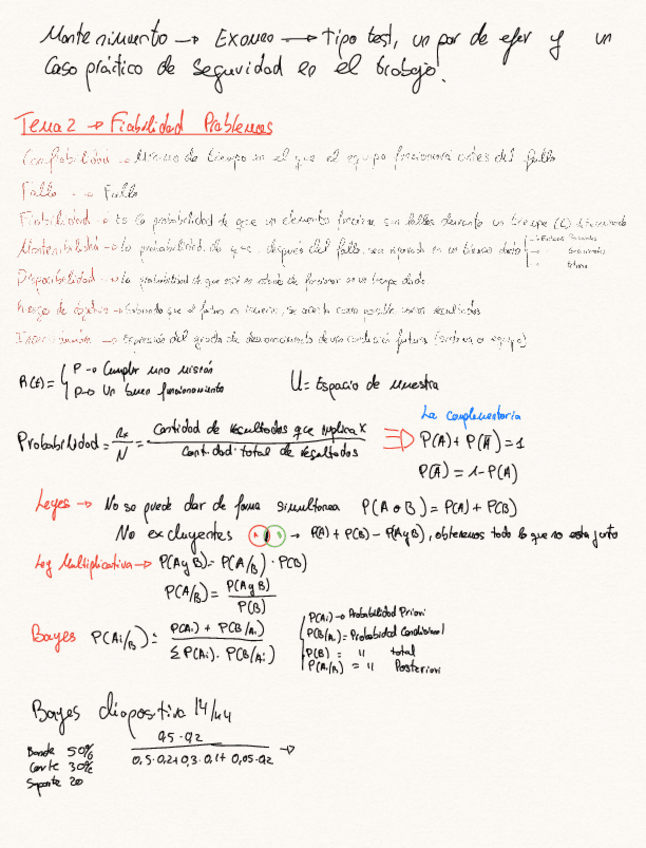 Mantenimiento → Examen → Tipo test, un par de ejer y un
Caso práctico de seguridad en el trabajo.
Tema 2 → Fiabilidad Problemas
Confiabilidad → de tiempo en el que el equipo funcionará antes del fallo
Fallo → Fallo
Fiabilidad → Es la probabilidad de que un elemento funcione sin fallos durante un tiempo (t) determinado
Mantenibilidad → la probabilidad de que después del fallo, sea reparado en un tiempo dado
Disponibilidad → la probabilidad de que esté en estado de funcionar en un tiempo dado
Riesgo de → que el futuro es incierto, se acepta como posible varios resultados
→ Expresión del grado de desconocimiento de una condición futura
R(t) = { P → Cumplir una misión
P → Un buen funcionamiento
U = Espacio de muestra
Probabilidad = nx/N = Cantidad de resultados que implica x / Cantidad total de resultados
La complementaria
P(A) + P(Ā) = 1
P(Ā) = 1 - P(A)
Leyes → No se puede dar de forma simultanea P(A o B) = P(A) + P(B)
No excluyentes A B → P(A) + P(B) - P(A y B), obtenemos todo lo que no esta junto
Ley Multiplicativa → P(A y B) = P(A/B) · P(B)
P(A/B) = P(A y B) / P(B)
Bayes P(Ai/B) = P(Ai) + P(B/Ai) / Σ P(Ai) · P(B/Ai)
P(Ai) → Probabilidad Priori
P(B/Ai) = Probabidad Condicional
P(B) = " total
P(Ai/B) = " Posteriori
Bayes diapositiva 14/44
0,5 · 0,2 / 0,5 · 0,2 + 0,3 · 0,1 + 0,05 · 0,2 →
50%
Corte 30%
Soporte 20